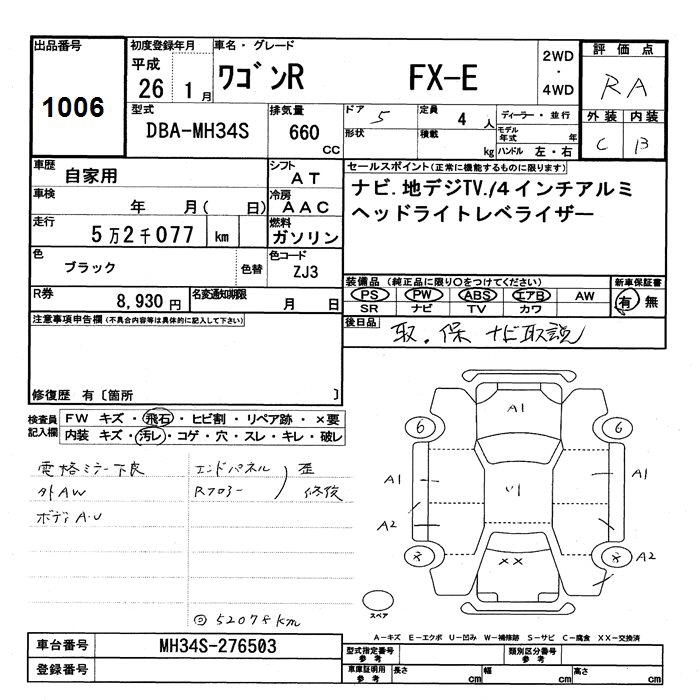 出品番号
1006
初度登録年月
平成
26 1月
車名・グレード
ワゴンR FX-E
2WD
・
4WD
評価点
RA
外装 内装
C B
型式
DBA-MH34S
排気量
660
CC
ドア 5
形状
定員
4 人
積載
kg
ディーラー・並行
モデル年式 年
ハンドル 左・右
車歴
自家用
シフト
AT
車検
年 月( 日)
冷房
AAC
走行
5万2千077 km
燃料
ガソリン
色
ブラック
色替
色コード
ZJ3
R券
8,930円
名変通知期限
月 日
セールスポイント(正常に機能するものに限ります)
ナビ.地デジTV./4インチアルミ
ヘッドライトレベライザー
装備品 (純正品に限り○をつけてください)
PS PW ABS エアB AW
SR ナビ TV カワ
新車保証書
有 無
後日品
取.保 ナビ取説
注意事項申告欄(不具合内容等は具体的に記入して下さい)
修復歴 有〔箇所 〕
検査員
記入欄
FW キズ・飛石・ヒビ割・リペア跡・×要
内装 キズ・汚レ・コゲ・穴・スレ・キレ・破レ
電格ミラー不良
外AW
ボディA.U
エンドパネル
Rフロアー
歪
修復
52078km
A1
6
6
A1
A1
A2
A2
××
スペア
A-キズ E-エクボ U-凹み W-補修跡 S-サビ C-腐食 XX-交換済
車台番号
MH34S-276503
登録番号
型式指定番号
参考
類別区分番号
参考
車庫証明用
参考
長さ cm
幅 cm
高さ cm